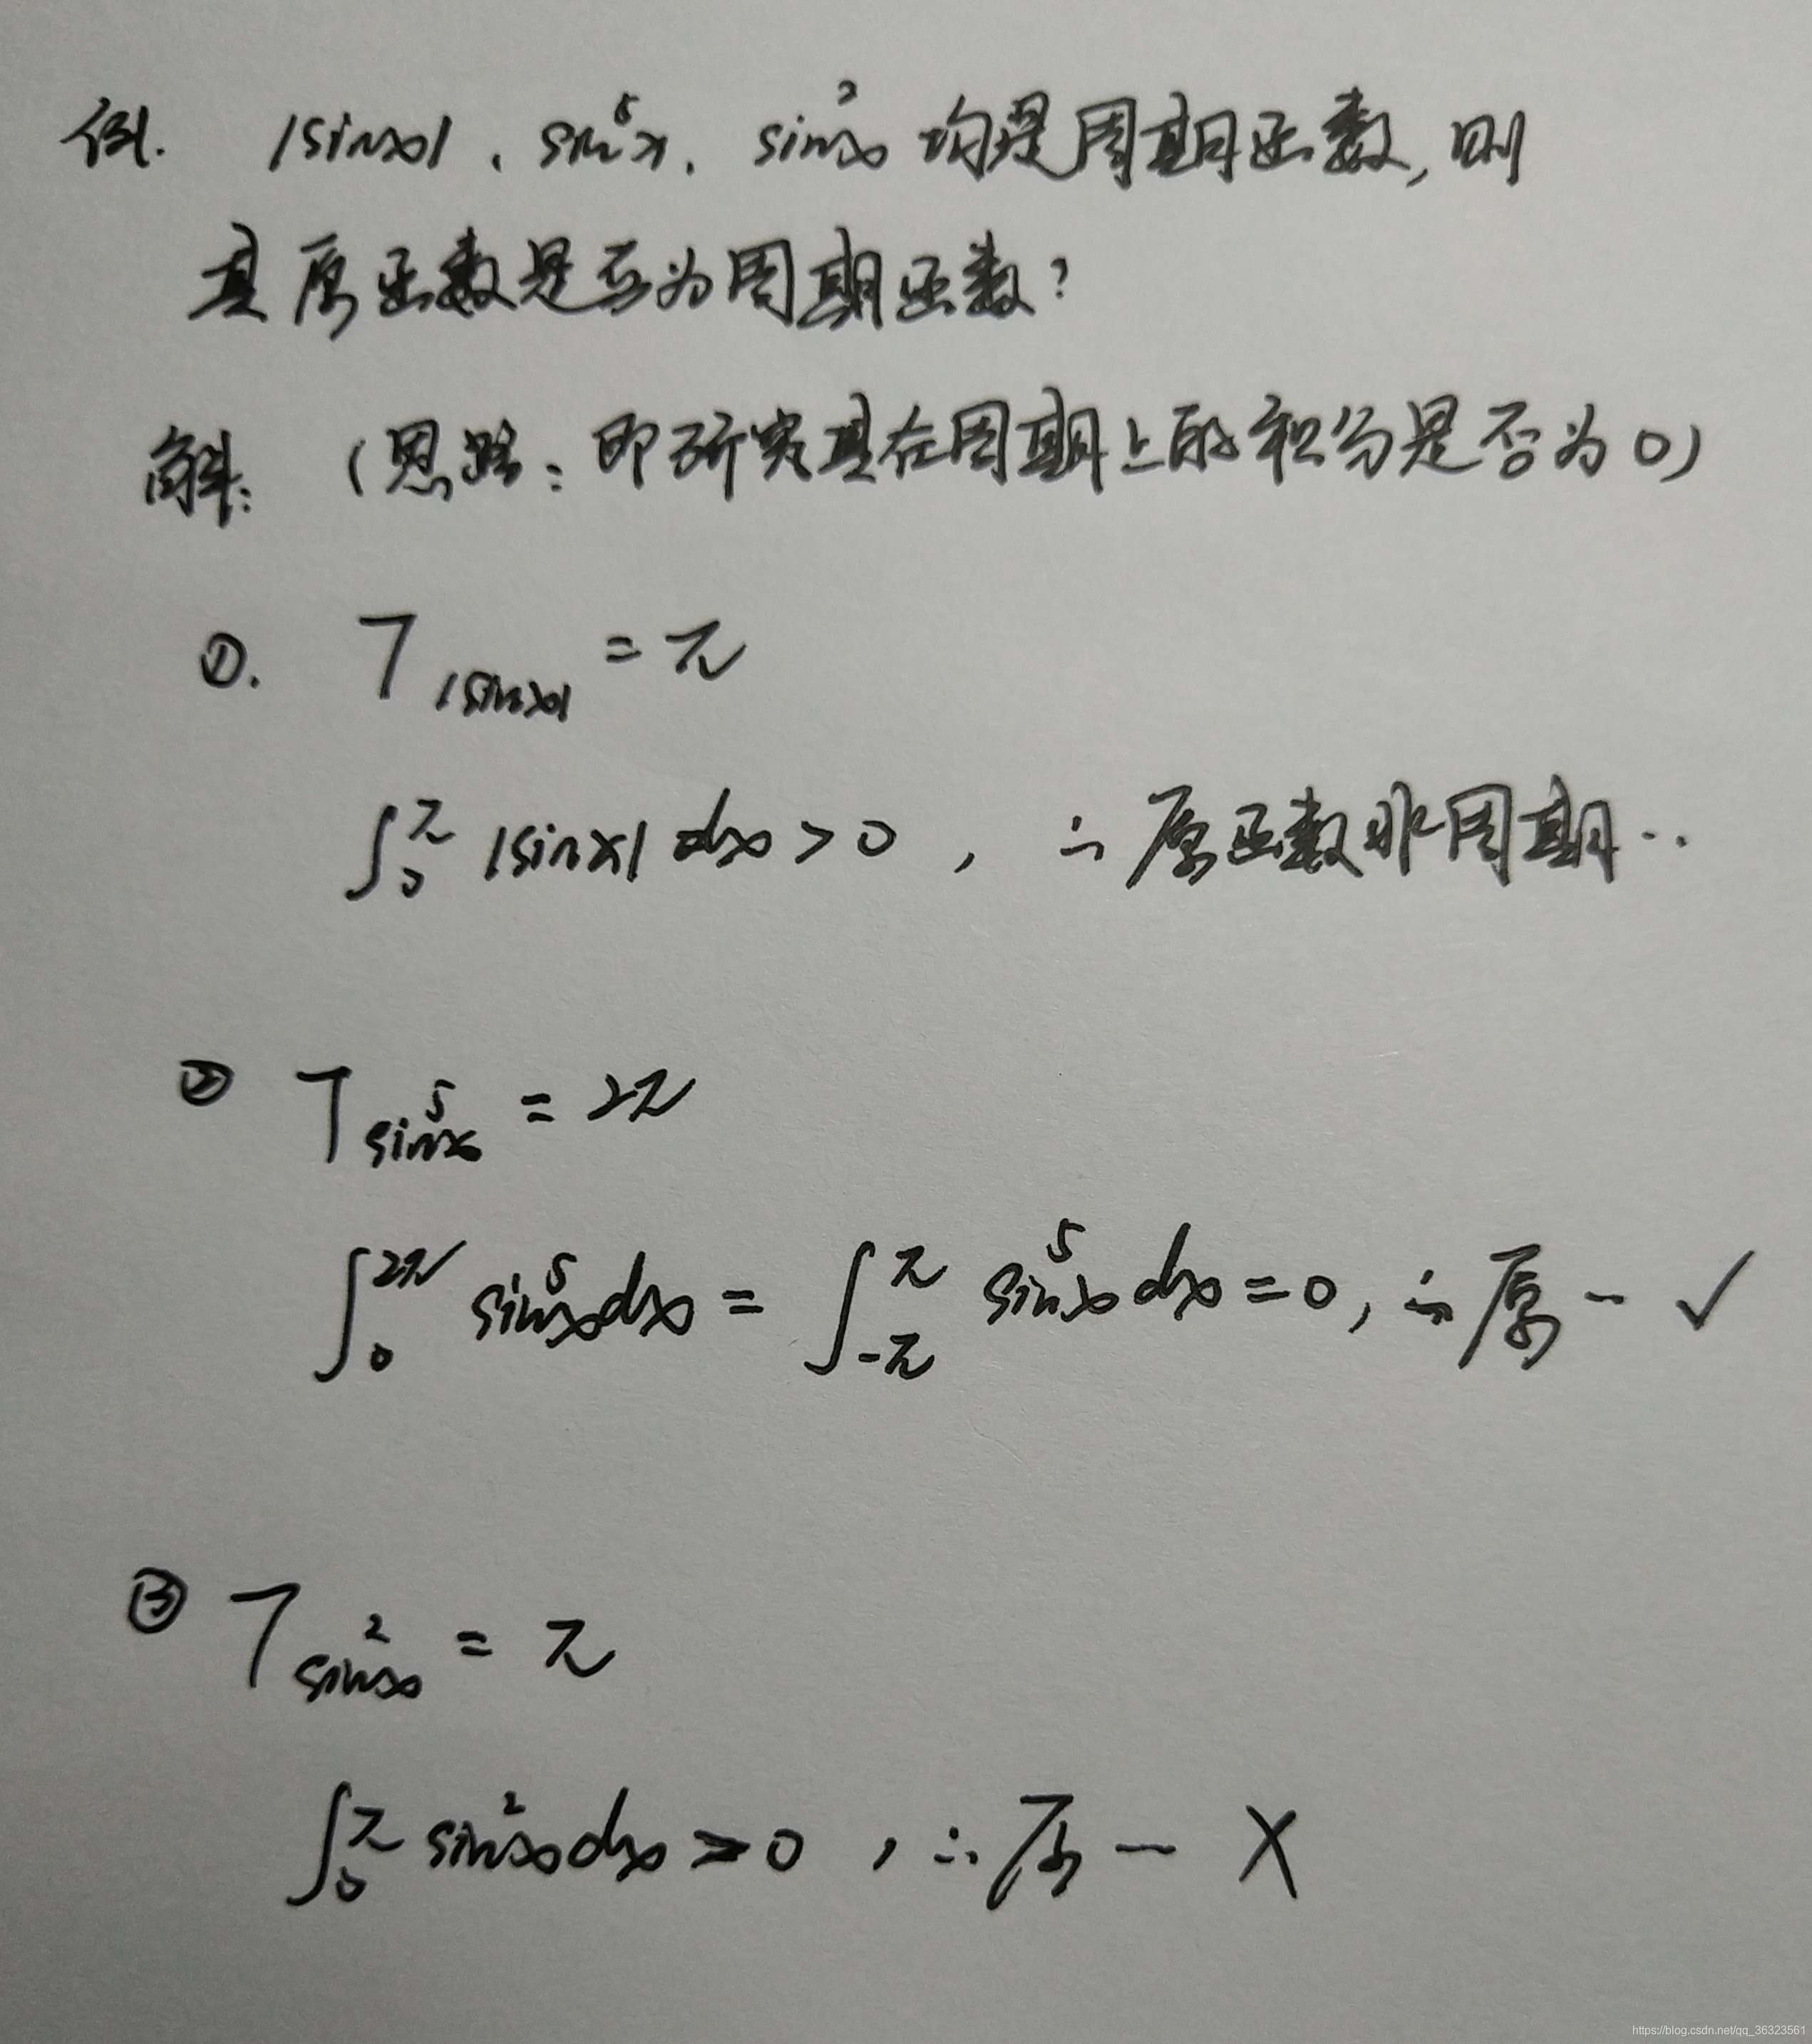 例. |sinx|、sin⁵x、sin²x 均是周期函数,则
其原函数是否为周期函数?
解: (思路:即研究其在周期上的积分是否为0)
①. T_{|sinx|} = π
∫₀^π |sinx| dx > 0 , ∴原函数非周期..
② T_{sin⁵x} = 2π
∫₀^{2π} sin⁵x dx = ∫_{-π}^{π} sin⁵x dx = 0, ∴原~ ✓
③ T_{sin²x} = π
∫₀^π sin²x dx > 0 , ∴原~ X
https://blog.csdn.net/qq_36323561